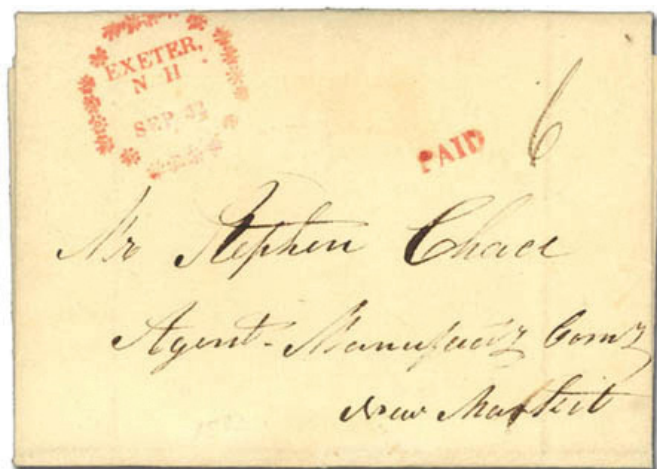 EXETER,
N H
SEP.
PAID
6
Mr Stephen Chace
Agent- Manufacty Comy
New Market